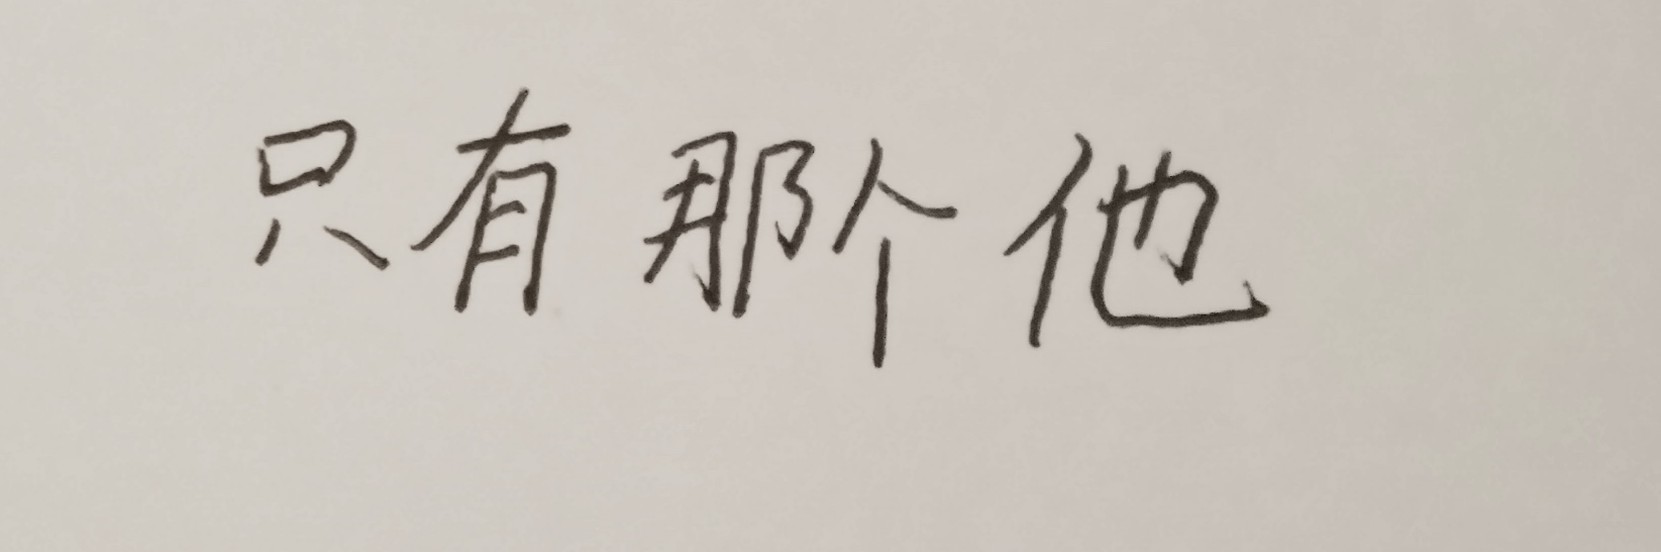 只有那个他